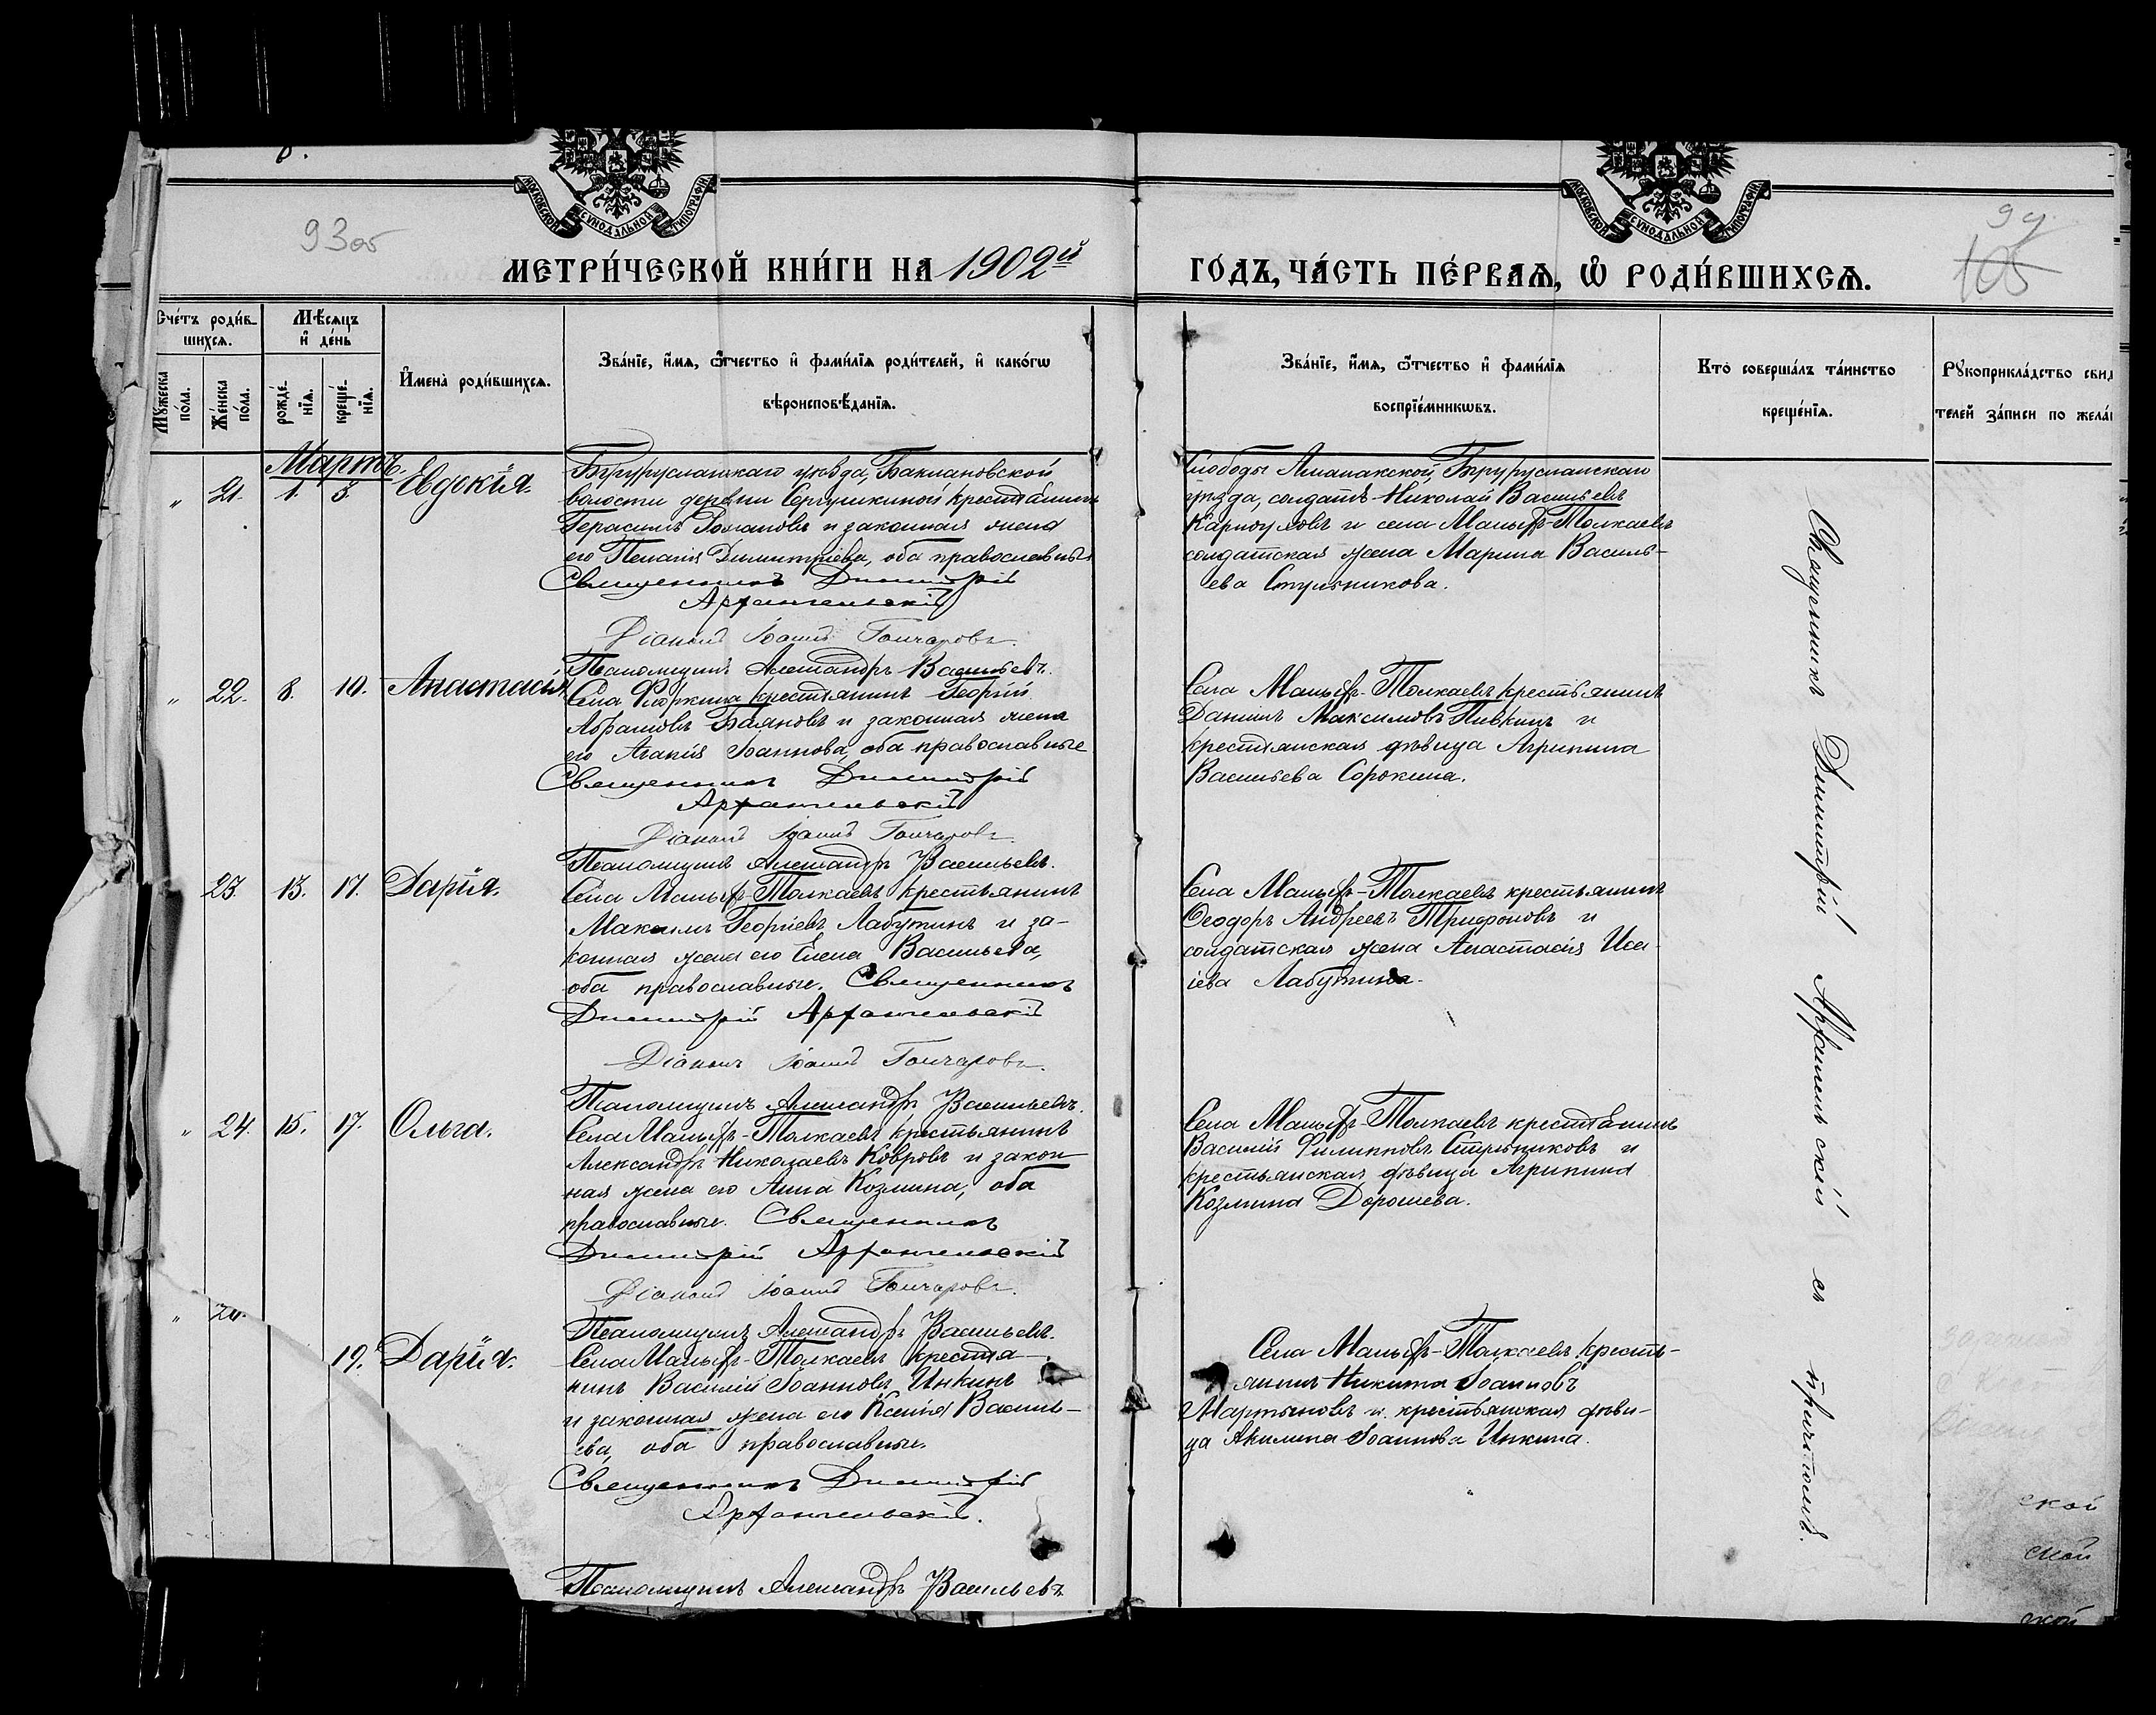 93об
94
105
МОСКОВСКОЙ СѴНОДАЛЬНОЙ ТИПОГРАФІИ
МОСКОВСКОЙ СѴНОДАЛЬНОЙ ТИПОГРАФІИ
МЕТРИ́ЧЕСКОЙ КНИ́ГИ НА 1902й ГО́ДЪ, ЧА́СТЬ ПЕ́РВАѦ, Ѡ҆ РОДИ́ВШИХСѦ.
Сче́тъ роди́в-
шихсѧ.
Мꙋ́жеска по́ла.
Же́нска по́ла.
Мѣ́сѧцъ
и҆ де́нь
рожде́-
нїѧ.
креще́-
нїѧ.
И҆мена̀ роди́вшихсѧ.
Зва́нїе, и҆́мѧ, ѻ҆́тчество и҆ фами́лїѧ роди́телей, и҆ како́гѡ
вѣроисповѣ́данїѧ.
Зва́нїе, и҆́мѧ, ѻ҆́тчество и҆ фами́лїѧ
воспрїе́мникѡвъ.
Кто̀ соверша́лъ та́инство
креще́нїѧ.
Рꙋкоприкла́дство свид
телей за́писи по жела́
Мартъ.
" 21. 1. 3. Евдокія.
Бугурусланскаго уѣзда, Баклановской
волости деревни Сергушкиной крестьянинъ
Герасимъ Романовъ и законная жена
его Пелагія Димитріева, оба православные
Священникъ Димитрій
Архангельскій
Діаконъ Іоаннъ Гончаровъ.
Псаломщикъ Александръ Васильевъ.
Слободы Аманакской, Бугурусланскаго
уѣзда, солдатъ Николай Васильевъ
Карпоуховъ и села Малыхъ-Толкаевъ
солдатская жена Марина Василь-
ева Стульникова.
" 22. 8. 10. Анастасія
Села Фіоркина крестьянинъ Георгій
Абрамовъ Баяновъ и законная жена
его Агапія Іоаннова, оба православные
Священникъ Димитрій
Архангельскій
Діаконъ Іоаннъ Гончаровъ
Псаломщикъ Александръ Васильевъ.
Села Малыхъ-Толкаевъ крестьянинъ
Даніилъ Максимовъ Пивкинъ и
крестьянская дѣвица Агрипина
Васильева Сорокина.
23. 13. 17. Дарія.
Села Малыхъ-Толкаевъ крестьянинъ
Максимъ Георгіевъ Лабутинъ и за-
конная жена его Елена Васильева,
оба православные. Священникъ
Димитрій Архангельскій
Діаконъ Іоаннъ Гончаровъ.
Псаломщикъ Александръ Васильевъ.
Села Малыхъ-Толкаевъ крестьянинъ
Ѳеодоръ Андреевъ Трифоновъ и
солдатская жена Анастасія Иса-
іева Лабутина.
" 24. 15. 17. Ольга.
Села Малыхъ-Толкаевъ крестьянинъ
Александръ Николаевъ Ковровъ и закон
ная жена его Анна Козмина, оба
православные. Священникъ
Димитрій Архангельскій
Діаконъ Іоаннъ Гончаровъ.
Псаломщикъ Александръ Васильевъ.
Села Малыхъ-Толкаевъ крестьянинъ
Василій Филипповъ Стульниковъ и
крестьянская дѣвица Агрипина
Козмина Дорошева.
" 19. Дарія.
Села Малыхъ-Толкаевъ крестья-
нинъ Василій Іоанновъ Инкинъ
и законная жена его Ксенія Василь-
ева, оба православные.
Священникъ Димитрій
Архангельскій.
Псаломщикъ Александръ Васильевъ.
Села Малыхъ-Толкаевъ кресть-
янинъ Никита Іоанновъ
Мартыновъ и крестьянская дѣви-
ца Акилина Іоаннова Инкина.
Священникъ Димитрій Архангельскій съ причтомъ.
ской
ской
ской